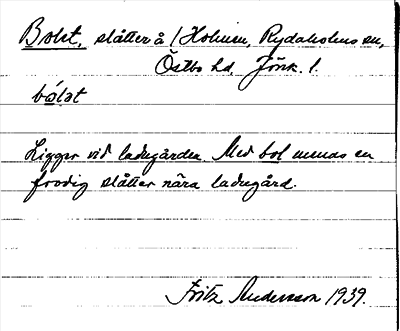 Bolet, slåtter å / Holmen, Rydaholms sn,
Östbo hd. Jönk. l.
bólət
Ligger vid ladugården. Med bol menas en
frodig slåtter nära ladugård.
Fritz Andersson 1939.